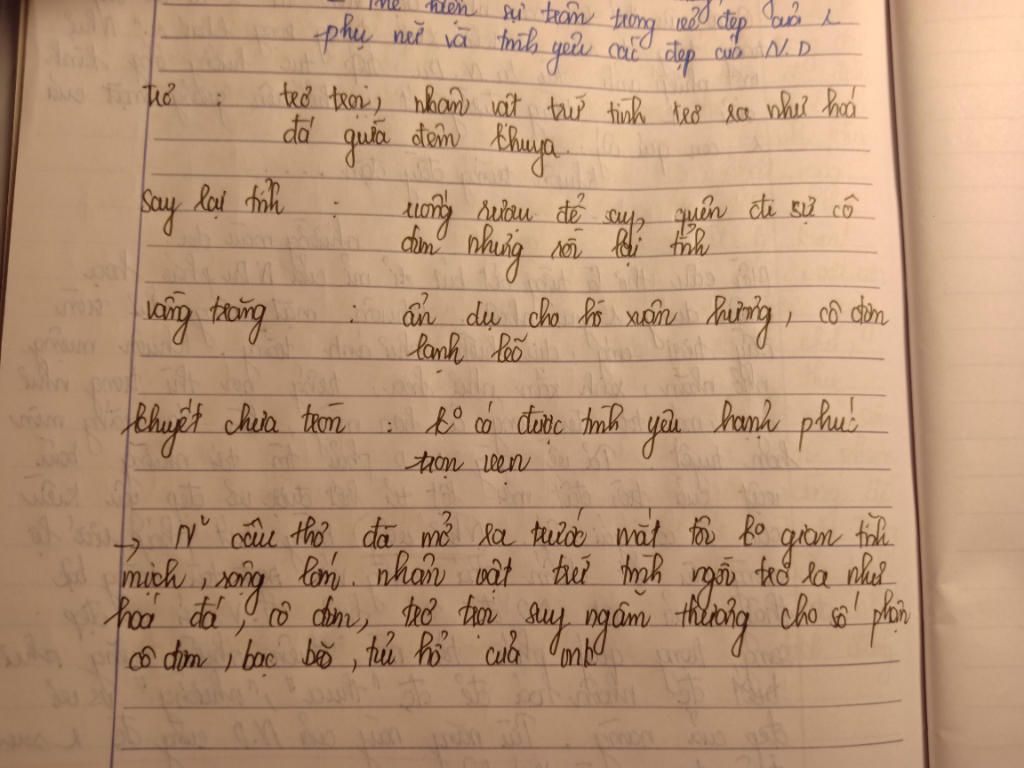 thể hiện sự trân trọng vẻ đẹp của
phụ nữ và tình yêu cái đẹp của N.D
trơ : trơ trọi, nhân vật trữ tình trơ ra như hoá
đá giữa đêm khuya.
Say lại tỉnh : uống rượu để say, quên đi sự cô
đơn nhưng rồi lại tỉnh
vầng trăng : ẩn dụ cho hồ xuân hương, cô đơn
lạnh lẽo
khuyết chưa tròn : k° có được tình yêu hạnh phúc
trọn vẹn
→ N² câu thơ đã mở ra trước mắt tôi k° gian tĩnh
mịch, rộng lớn. nhân vật trữ tình ngồi trơ ra như
hoá đá, cô đơn, trơ trọi suy ngẫm thương cho số phận
cô đơn, bạc bẽo, tủi hổ của mình